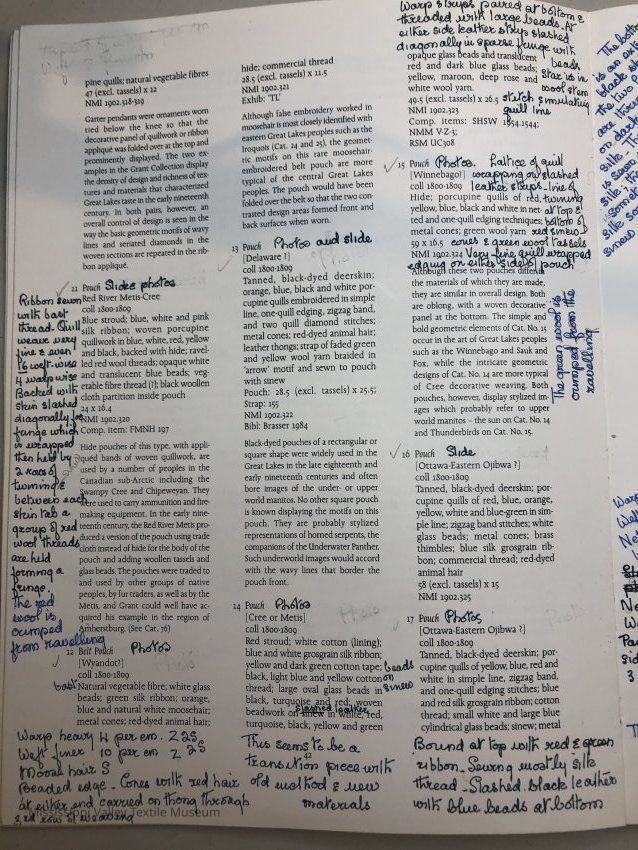 pine quills; natural vegetable fibres
47 (excl. tassels) x 12
NMI 1902.318-319
Garter pendants were ornaments worn
tied below the knee so that the
decorative panel of quillwork or ribbon
appliqué was folded over at the top and
prominently displayed. The two ex-
amples in the Grant Collection display
the density of design and richness of tex-
tures and materials that characterized
Great Lakes taste in the early nineteenth
century. In both pairs, however, an
overall control of design is seen in the
way the basic geometric motifs of wavy
lines and serrated diamonds in the
woven sections are repeated in the rib-
bon appliqué.
11 Pouch Slides photos
Red River Metis-Cree
coll 1800-1809
Blue stroud; blue, white and pink
silk ribbon; woven porcupine
quillwork in blue, white, red, yellow
and black, backed with hide; ravel-
led red wool threads; opaque white
and translucent blue beads; veg-
etable fibre thread (?); black woollen
cloth partition inside pouch
24 x 16.4
NMI 1902.320
Comp. item: FMNH 197
Hide pouches of this type, with appli-
quéd bands of woven quillwork, are
used by a number of peoples in the
Canadian sub-Arctic including the
Swampy Cree and Chipeweyan. They
were used to carry ammunition and fire-
making equipment. In the early nine-
teenth century, the Red River Metis pro-
duced a version of the pouch using trade
cloth instead of hide for the body of the
pouch and adding woollen tassels and
glass beads. The pouches were traded to
and used by other groups of native
peoples, by fur traders, as well as by the
Metis, and Grant could well have ac-
quired his example in the region of
Amherstburg. (See Cat. 76)
12 Belt Pouch Photos
[Wyandot?]
coll 1800-1809
bast Natural vegetable fibre; white glass
beads; green silk ribbon; orange,
blue and natural white moosehair;
metal cones; red-dyed animal hair;
Ribbon sewn
with bast
thread. Quill
weave very
fine & even
16 weft-wise
4 warp wise
Backed with
skin slashed
diagonally for
fringe which
is wrapped
then held by
2 rows of
twining &
between each
skin tab a
group of red
wool threads
are held
forming a
fringe.
The red
wool is
crimped
from ravelling
Warp heavy 4 per cm. Z 2S
Weft finer 10 per cm Z 2S
Moose hair S
Beaded edge - Cones with red hair
at either end carried on thong through
3rd row of weaving
hide; commercial thread
28.5 (excl. tassels) x 11.5
NMI 1902.321
Exhib: 'TL'
Although false embroidery worked in
moosehair is most closely identified with
eastern Great Lakes peoples such as the
Iroquois (Cat. 24 and 25), the geomet-
ric motifs on this rare moosehair-
embroidered belt pouch are more
typical of the central Great Lakes
peoples. The pouch would have been
folded over the belt so that the two con-
trasted design areas formed front and
back surfaces when worn.
13 Pouch Photos and slide
[Delaware ?]
coll 1800-1809
Tanned, black-dyed deerskin;
orange, blue, black and white por-
cupine quills embroidered in simple
line, one-quill edging, zigzag band,
and two quill diamond stitches;
metal cones; red-dyed animal hair;
leather thongs; strap of faded green
and yellow wool yarn braided in
'arrow' motif and sewn to pouch
with sinew
Pouch: 28.5 (excl. tassels) x 25.5;
Strap: 155
NMI 1902.322
Bibl: Brasser 1984
Black-dyed pouches of a rectangular or
square shape were widely used in the
Great Lakes in the late eighteenth and
early nineteenth centuries and often
bore images of the under- or upper
world manitos. No other square pouch
is known displaying the motifs on this
pouch. They are probably stylized
representations of horned serpents, the
companions of the Underwater Panther.
Such underworld images would accord
with the wavy lines that border the
pouch front.
14 Pouch Photos
[Cree or Metis]
coll 1800-1809
Red stroud; white cotton (lining);
blue and white grosgrain silk ribbon;
yellow and dark green cotton tape; beads
black, light blue and yellow cotton on
thread; large oval glass beads in sinew
black, turquoise and red; woven
slashed leather
beadwork on sinew in white, red,
turquoise, black, yellow and green
42
This seems to be a
transition piece with
old method & new
materials
Warp strips paired at bottom &
threaded with large beads. At
either side leather strips slashed
diagonally in sparse fringe with
beads
opaque glass beads and translucent
red and dark blue glass beads; star is in
yellow, maroon, deep rose and wool stem
white wool yarn.
49.5 (excl. tassels) x 26.5 stitch simulating
NMI 1902.323 quill line
Comp. items: SHSW 1954.1544;
NMM V-Z-3;
RSM UC308
15 Pouch Photos. Lattice of quill
[Winnebago?] wrapping on slashed
coll 1800-1809 leather strips - line of
Hide; porcupine quills of red, twining
yellow, blue, black and white in net- at top &
ted and one-quill edging techniques; bottom of
metal cones; green wool yarn red sinew
59 x 16.5 cones & green wool tassels
NMI 1902.324 Very fine quill wrapped
edging on either side of pouch
Although these two pouches differ in
the materials of which they are made,
they are similar in overall design. Both
are oblong, with a woven decorative
panel at the bottom. The simple and
bold geometric elements of Cat. No. 15
occur in the art of Great Lakes peoples
such as the Winnebago and Sauk and
Fox, while the intricate geometric
designs of Cat. No. 14 are more typical
of Cree decorative weaving. Both
pouches, however, display stylized im-
ages which probably refer to upper
world manitos – the sun on Cat. No. 14
and Thunderbirds on Cat. No. 15.
The green wool is
crimped from the
ravelling
16 Pouch Slide
[Ottawa-Eastern Ojibwa ?]
coll 1800-1809
Tanned, black-dyed deerskin; por-
cupine quills of red, blue, orange,
yellow, white and blue-green in sim-
ple line; zigzag band stitches; white
glass beads; metal cones; brass
thimbles; blue silk grosgrain rib-
bon; commercial thread; red-dyed
animal hair
58 (excl. tassels) x 15
NMI 1902.325
17 Pouch Photos
[Ottawa-Eastern Ojibwa ?]
coll 1800-1809
Tanned, black-dyed deerskin; por-
cupine quills of yellow, blue, red and
white in simple line, zigzag band,
and one-quill edging stitches; blue
and red silk grosgrain ribbon; cotton
thread; small white and large blue
cylindrical glass beads; sinew; metal
Bound at top with red & green
ribbon - Sewing mostly silk
thread - Slashed black leather
with blue beads at bottom
Mississippi Valley Textile Museum